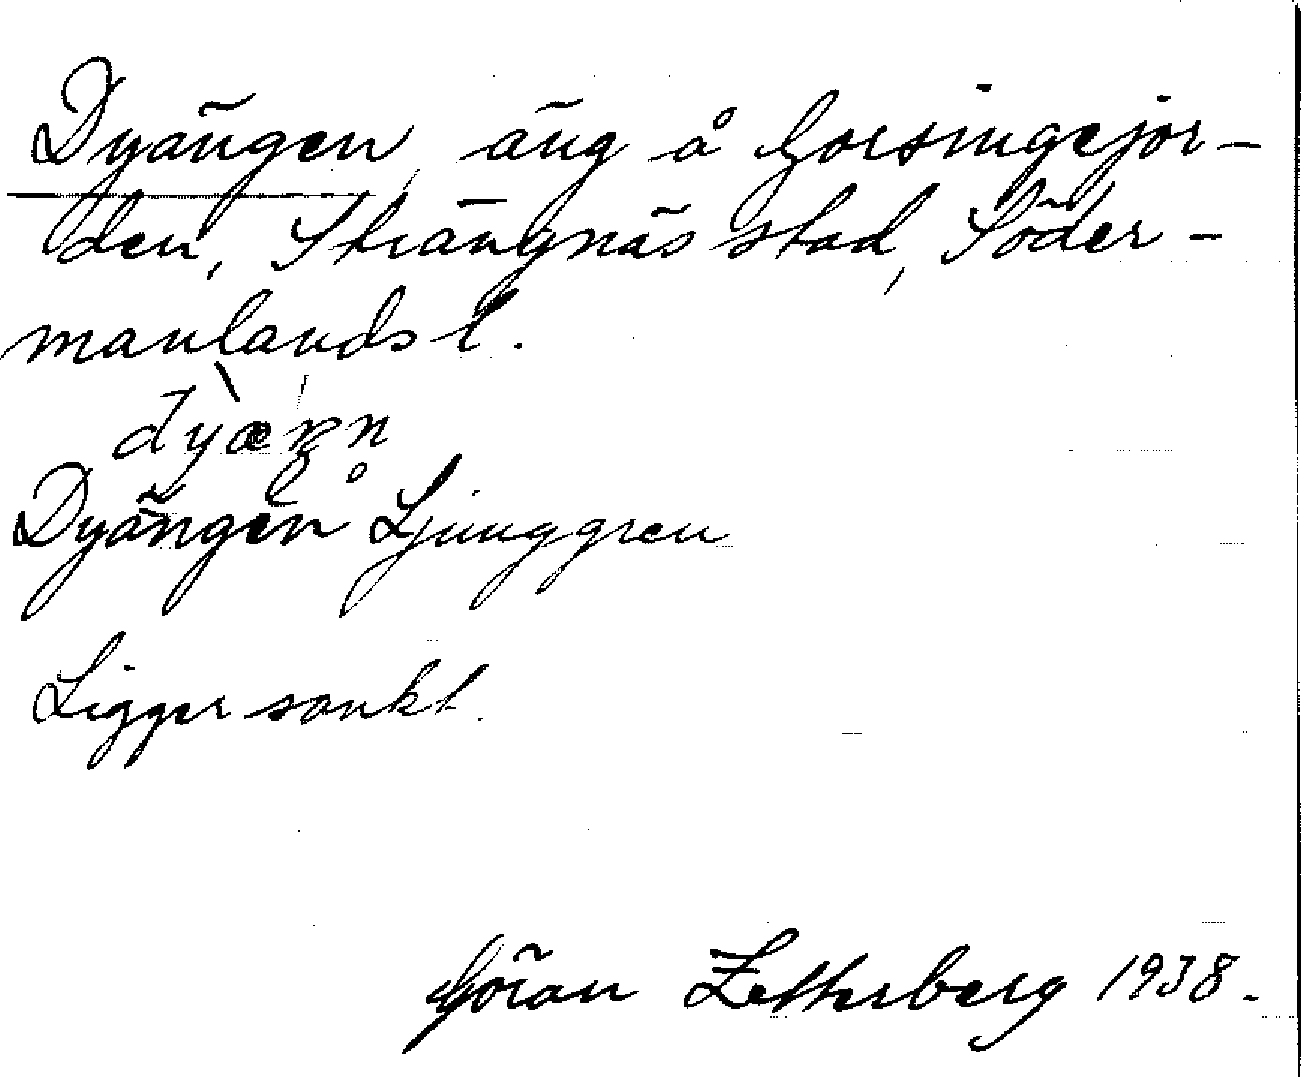 Dyängen, äng å Gorsingejor-
den, Strängnäs stad, Söder-
manlands l.
Dyängen Ljunggren
Ligger sankt.
Göran Zetherberg 1938.